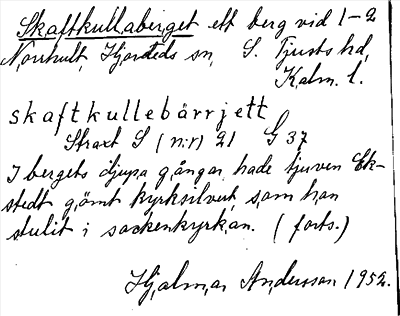 Skaftkullaberget ett berg vid 1-2
Norrhult, Hjorteds sn, S. Tjusts hd,
Kalm. l.
skaftkullebärrjett
Straxt S (n:r) 21 G 37
I bergets djupa gångar hade tjuven Ek-
stedt gömt kyrksilvret, som han
stulit i sockenkyrkan. (forts.)
Hjalmar Andersson 1952.